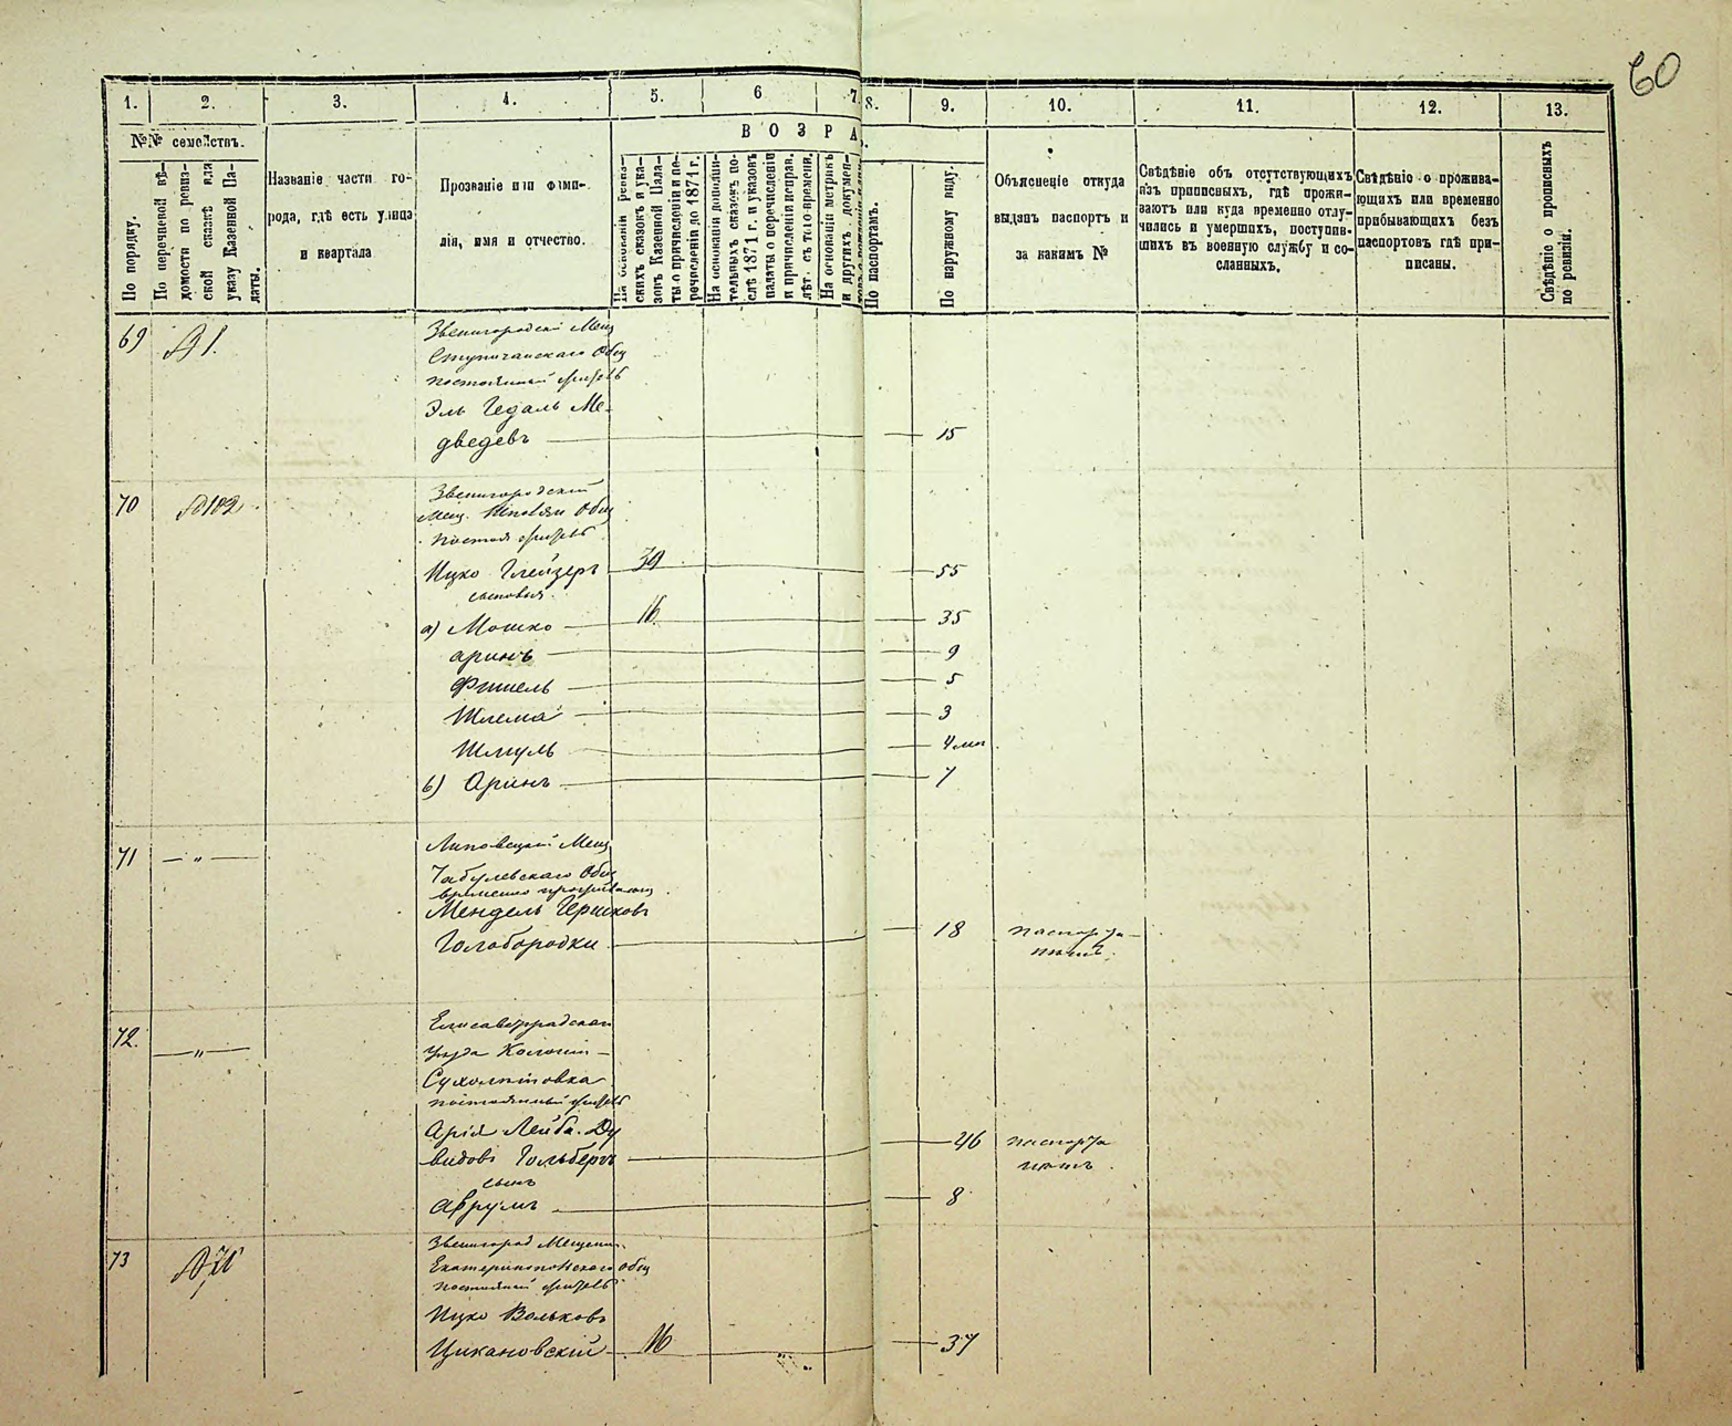 60
1. 2. 3. 4. 5. 6 7. 8. 9. 10. 11. 12. 13.
№№ семействъ.
По порядку.
По перечневой вѣ-
домости по ревиз-
ской сказкѣ или
указу Казенной Па-
латы.
Названіе части го-
рода, гдѣ есть улица
и квартала
Прозваніе или фами-
лія, имя и отчество.
ВОЗРА
На основаніи ревиз-
скихъ сказокъ и ука-
зовъ Казенной Пала-
ты о причисленіи и пе-
речисленіи до 1871 г.
На основаніи дополни-
тельныхъ сказокъ по-
слѣ 1871 г. и указовъ
палаты о перечисленіи
и причисленіи исправ.
лѣт. съ того времени.
На основаніи метрикъ
и другихъ докумен-
По паспортамъ.
По наружному виду.
Объясненіе откуда
выданъ паспортъ и
за какимъ №
Свѣдѣніе объ отсутствующихъ
изъ приписныхъ, гдѣ прожи-
ваютъ или куда временно отлу-
чились и умершихъ, поступив-
шихъ въ военную службу и со-
сланныхъ.
Свѣдѣніе о прожива-
ющихъ или временно
прибывающихъ безъ
паспортовъ гдѣ при-
писаны.
Свѣдѣніе о прописныхъ
по ревизіи.
69 № 1.
Звенигородскій Мещ
Общ
постоянный житель
Эль Гедаль Ме-
дведевъ 15
70 №102
Звенигородскій
Мещ. Шполян Общ
постоя житель
Ицко Глейзеръ 39 55
сыновья
а) Мошко 16 35
аринъ 9
Фишель 5
Шлема 3
Шмуль 4 мѣс
b) Аринъ 7
71 — " —
Липовецкій Мещ
Общ
временно прожив
Мендель Гершковъ
Голобородки 18 паспорта
нѣтъ.
72. — " —
Елисаветградскаго
Уѣзда Колоніи
постоянный житель
Арія Лейба. Ду
видовъ Гольберъ 46 паспорта
нѣтъ.
сынъ
Аврумъ 8
73
Звенигород Мещанин
Екатеринопольскаго общ
постоянный житель
Ицко Вольковъ
Цикановскій 16 37